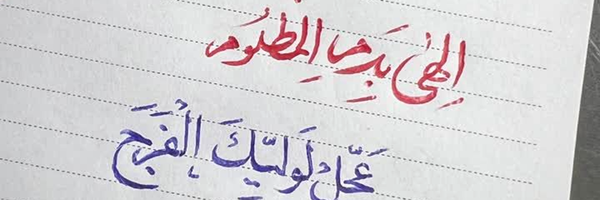 اِلهٰى بِدَمِ المظلُوم
عَجّلْ لَوليّكَ الْفَرَجَ